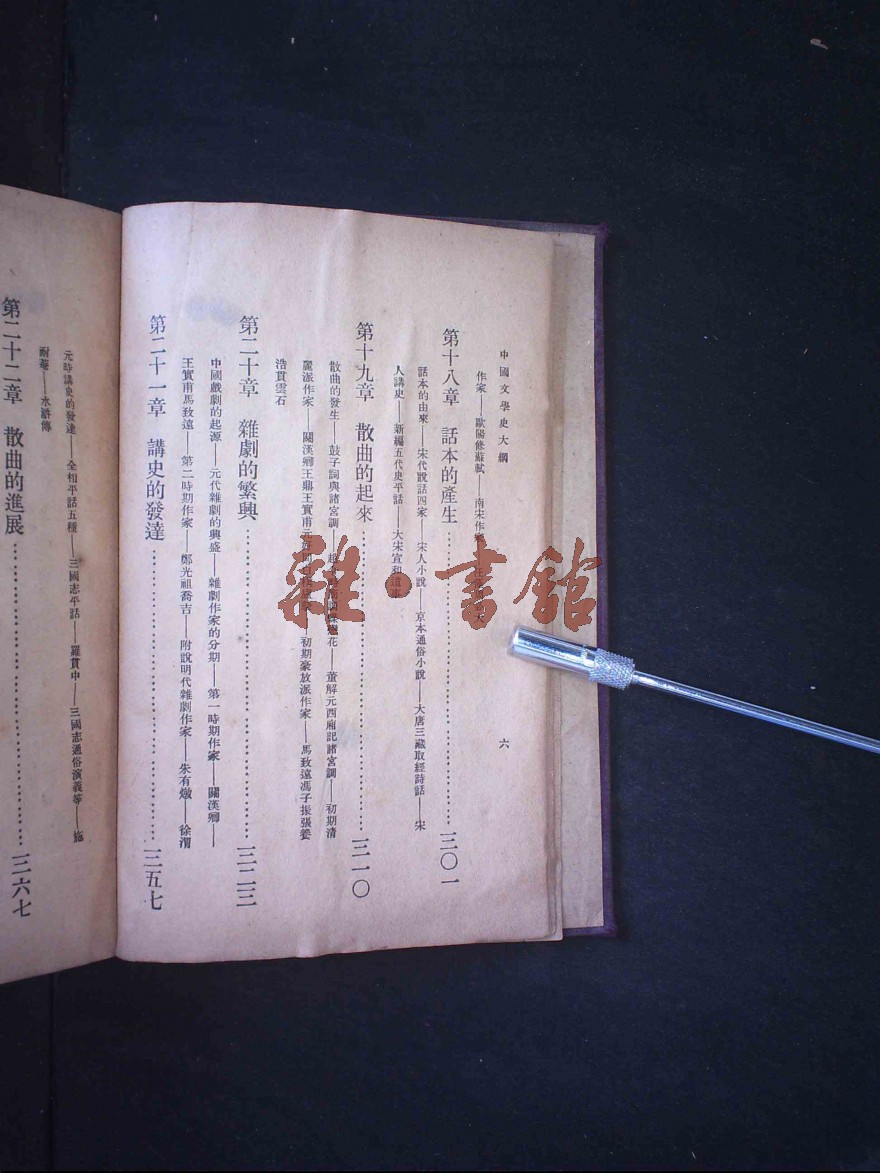 中國文學史大綱
六
作家——歐陽修蘇軾——南宋作家
第十八章 話本的產生 三〇一
話本的由來——宋代說話四家——宋人小說——京本通俗小說——大唐三藏取經詩話——宋
人講史——新編五代史平話——大宋宣和遺事
第十九章 散曲的起來 三一〇
散曲的發生——鼓子詞與諸宮調——董解元西廂記諸宮調——初期清
麗派作家——關漢卿王鼎王實甫——初期豪放派作家——馬致遠馮子振張養
浩貫雲石
第二十章 雜劇的繁興 三二三
中國戲劇的起源——元代雜劇的興盛——雜劇作家的分期——第一時期作家——關漢卿——
王實甫馬致遠——第二時期作家——鄭光祖喬吉——附說明代雜劇作家——朱有燉——徐渭
第二十一章 講史的發達 三五七
元時講史的發達——全相平話五種——三國志平話——羅貫中——三國志通俗演義等——施
耐菴——水滸傳
第二十二章 散曲的進展 三六七
雜·書館